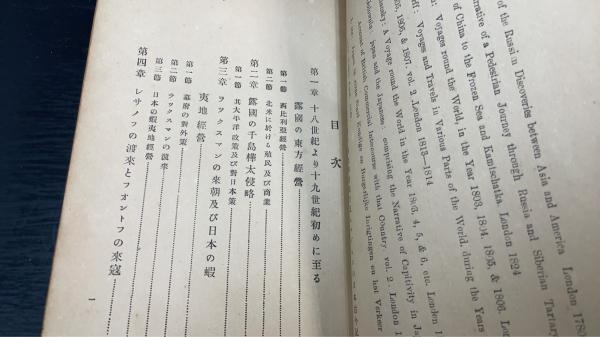 of the Russian Discoveries between Asia and America London 1780
rrative of a Pedestrian Journey through Russia and Siberian Tartary
of China to the Frozen Sea and Kamtschatka. London 1824
: Voyages round the World, in the Year 1803, 1804, 1805, & 1806. Lon
rff: Voyages and Travels in Various Parts of the World, during the Years
1805, & 1807. vol. 2. London 1813—1814
ansky: A Voyage round the World in the Year 1803, 4, 5, & 6, etc. London 1
Japan and the Japanese: comprising the Narrative of Captivity in Ja
Account of British Commercial Intercourse with that Country vol. 2. London 1
目次
第一章 十八世紀より十九世紀初めに至る
露國の東方經營
第一節 西比利亞經營
第二節 北米に於ける殖民及び商業
第二章 露國の千島樺太侵略
第一節 北太平洋政策及び對日本策
第三章 ラツクスマンの來朝及び日本の蝦
夷地經營
第一節 幕府の對外策
第二節 ラツクスマンの渡來
第三節 日本の蝦夷地經營
第四章 レサノフの渡來とフオントフの來寇
1